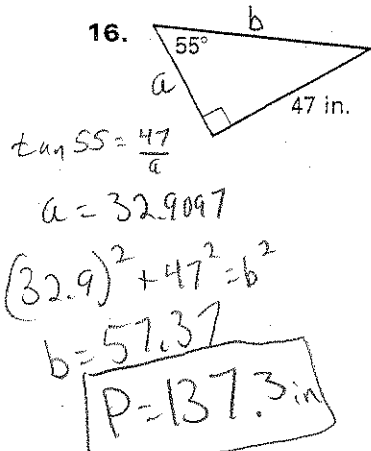 16.
b
55°
a
47 in.
tan 55 = 47/a
a = 32.9097
(32.9)² + 47² = b²
b = 57.37
P = 137.3 in